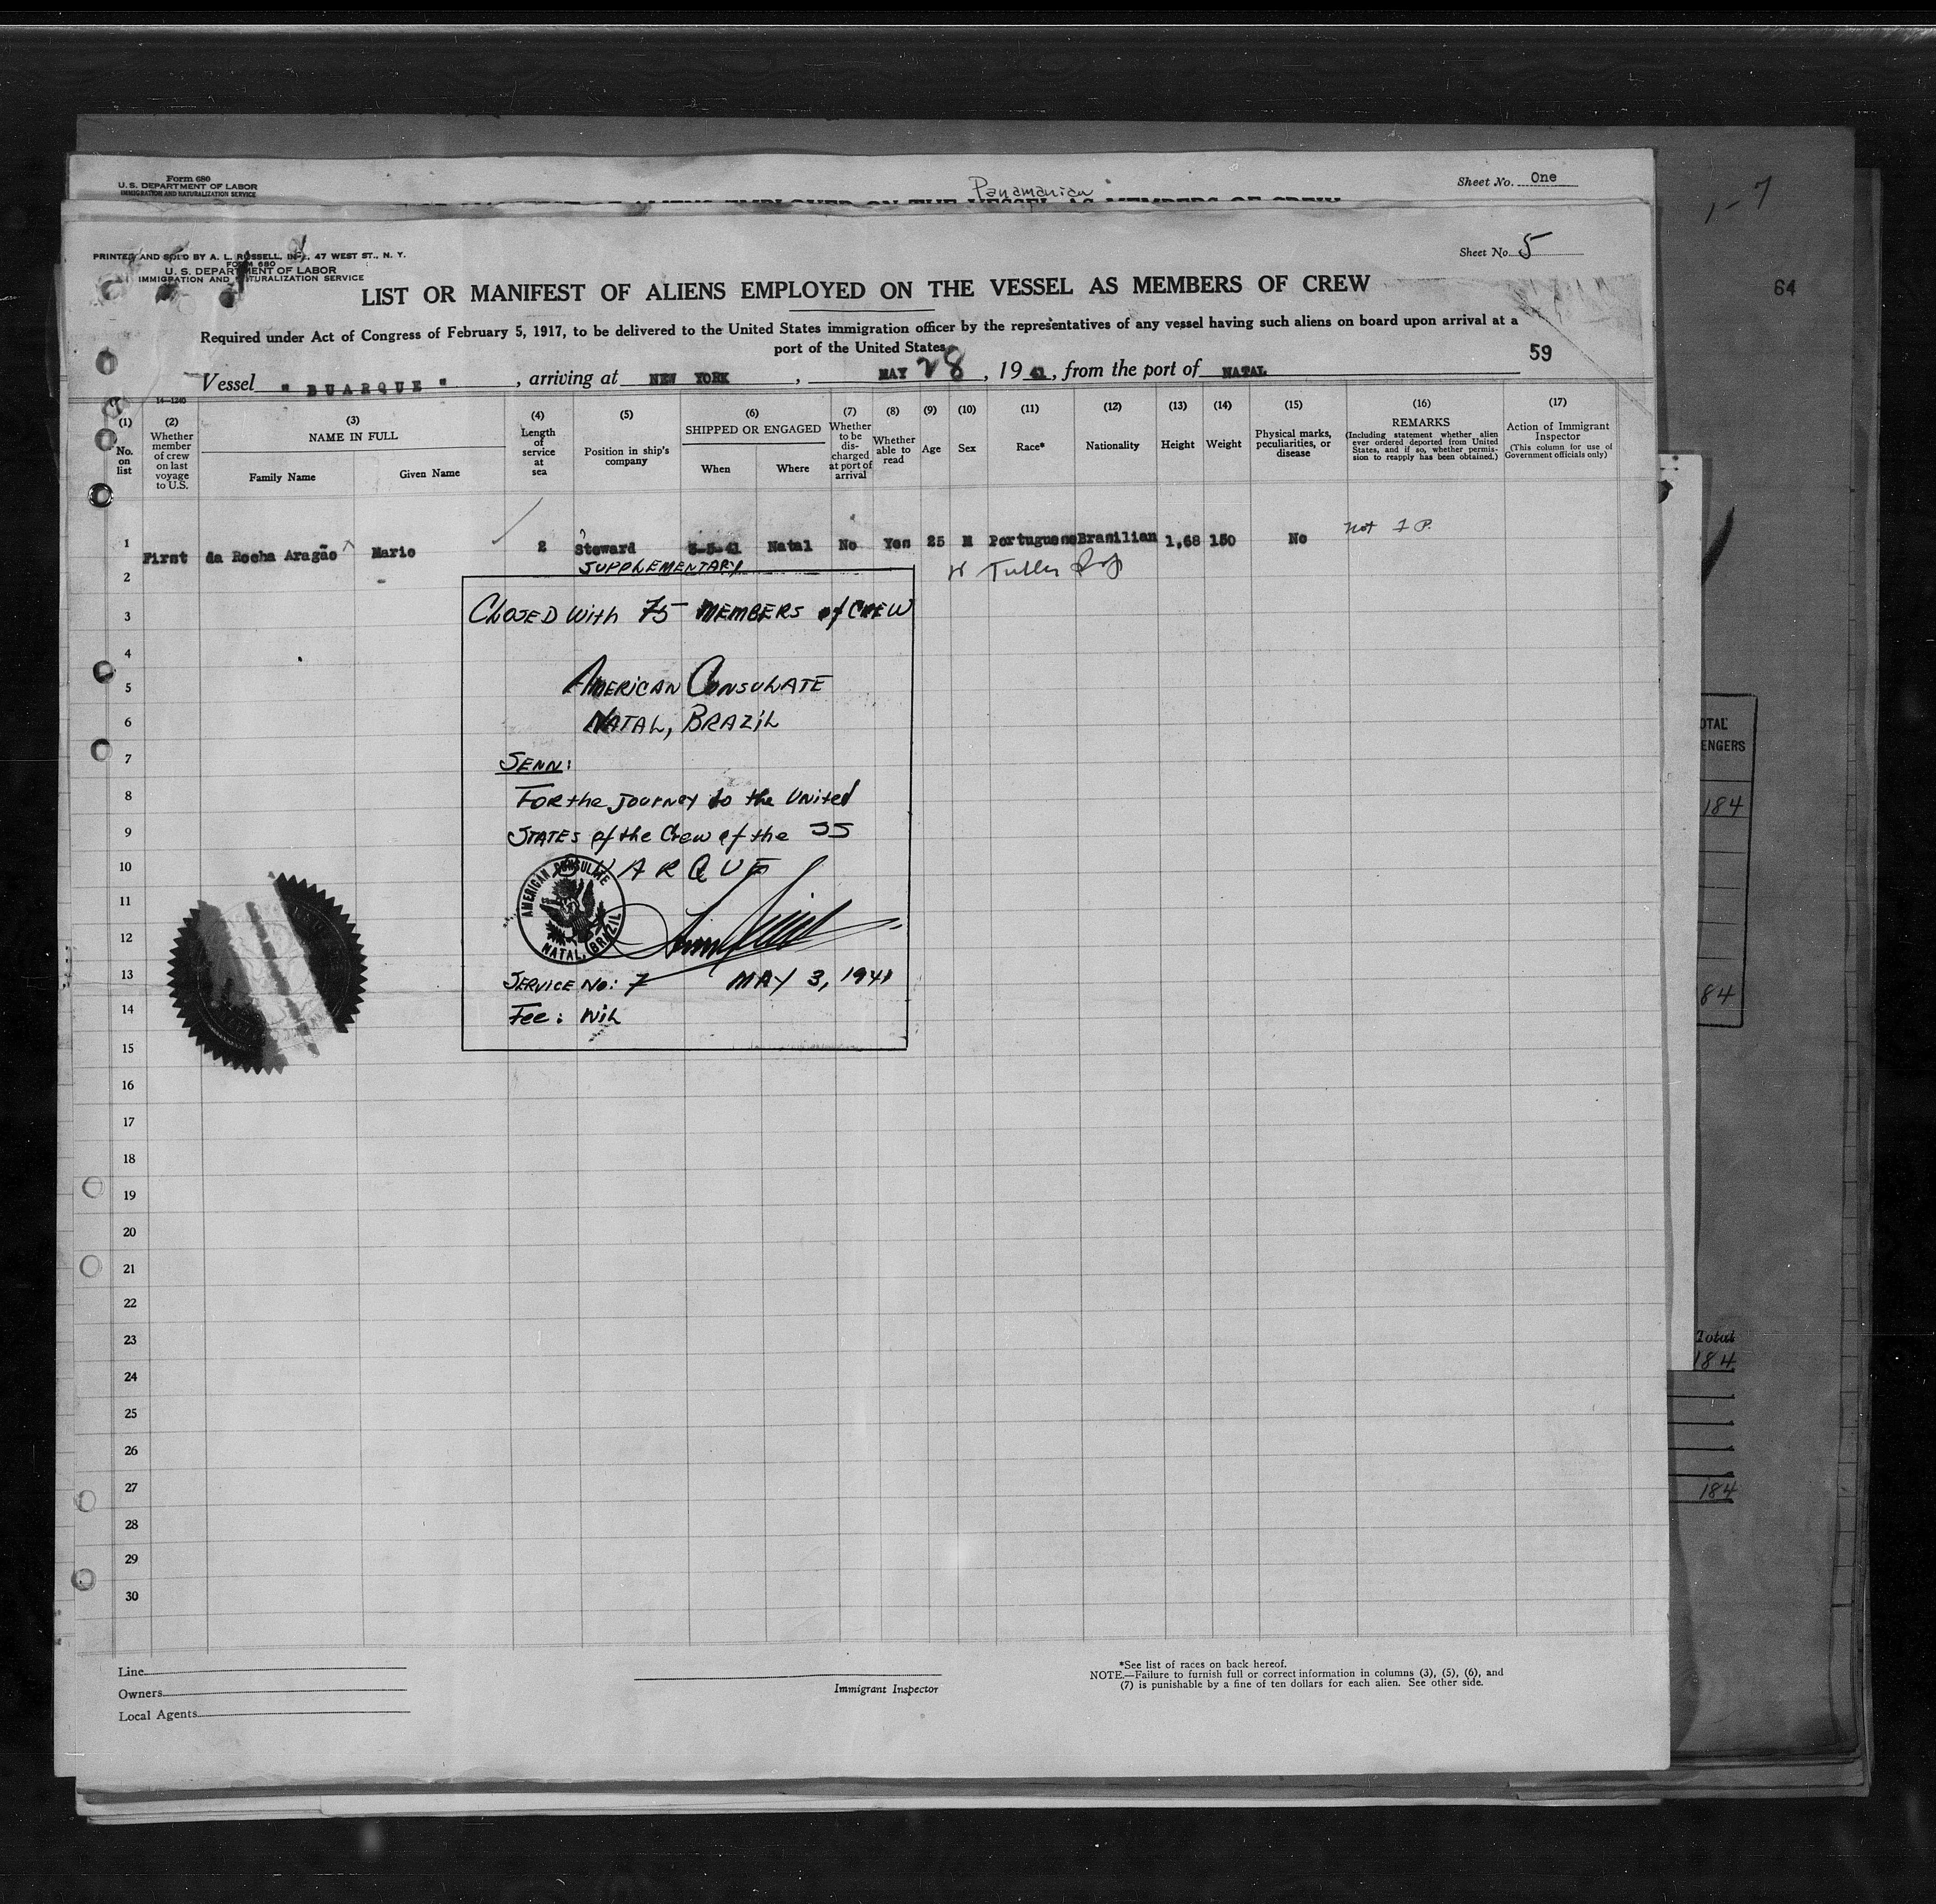 Form 680
U. S. DEPARTMENT OF LABOR
IMMIGRATION AND NATURALIZATION SERVICE
Panamanian
Sheet No. One
LIST OR MANIFEST OF ALIENS EMPLOYED ON THE VESSEL AS MEMBERS OF CREW
1-7
64
PRINTED AND SOLD BY A. L. RUSSELL, INC., 47 WEST ST., N. Y.
FORM 680
U. S. DEPARTMENT OF LABOR
IMMIGRATION AND NATURALIZATION SERVICE
Sheet No. 5
LIST OR MANIFEST OF ALIENS EMPLOYED ON THE VESSEL AS MEMBERS OF CREW
Required under Act of Congress of February 5, 1917, to be delivered to the United States immigration officer by the representatives of any vessel having such aliens on board upon arrival at a
port of the United States
59
Vessel " BUARQUE ", arriving at NEW YORK, MAY 28, 1941, from the port of NATAL
14—1240
(1) No. on list
(2) Whether member of crew on last voyage to U.S.
(3) NAME IN FULL
Family Name Given Name
(4) Length of service at sea
(5) Position in ship's company
(6) SHIPPED OR ENGAGED
When Where
(7) Whether to be discharged at port of arrival
(8) Whether able to read
(9) Age
(10) Sex
(11) Race*
(12) Nationality
(13) Height
(14) Weight
(15) Physical marks, peculiarities, or disease
(16) REMARKS
(Including statement whether alien ever ordered deported from United States, and if so, whether permission to reapply has been obtained.)
(17) Action of Immigrant Inspector
(This column for use of Government officials only)
1 First da Rocha Aragão Mario 2 Steward 3-5-41 Natal No Yes 25 M Portuguese Brasilian 1,68 150 No Not I P.
SUPPLEMENTARY
2
CLOSED With 75 MEMBERS of CREW
3
4
AMERICAN CONSULATE
5
NATAL, BRAZIL
6
SEEN:
7
FOR the JOURNEY to the UNITED
8
STATES of the Crew of the SS
9
UARQUE
10
AMERICAN CONSULATE
NATAL, BRAZIL
11
12
SERVICE No: 7 MAY 3, 1941
13
Fee: NIL
14
15
16
17
18
19
20
21
22
23
24
25
26
27
28
29
30
Line
Owners
Local Agents
Immigrant Inspector
*See list of races on back hereof.
NOTE.—Failure to furnish full or correct information in columns (3), (5), (6), and
(7) is punishable by a fine of ten dollars for each alien. See other side.
OTAL
ENGERS
184
84
Total
184
184